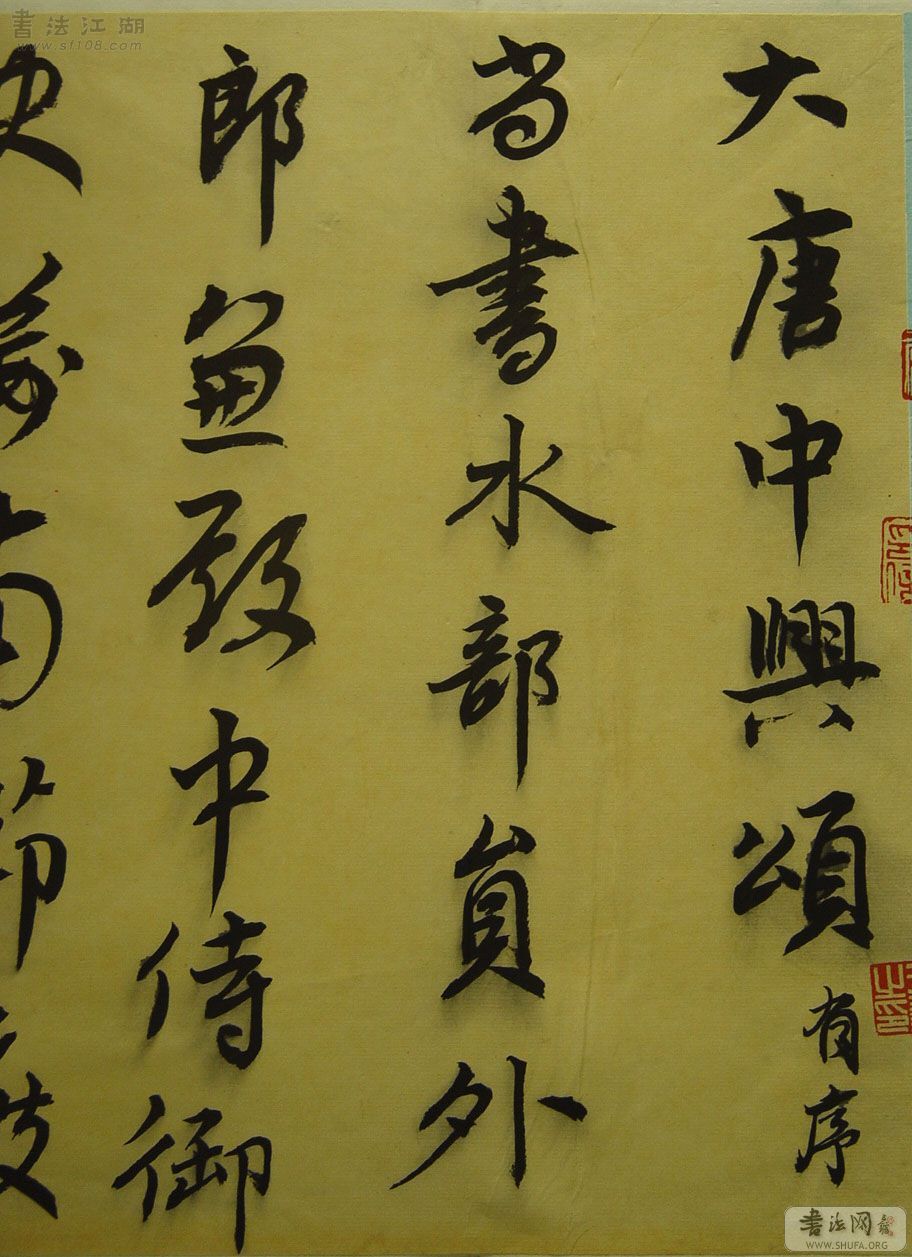 大唐中興頌 有序
尚書水部員外
郎兼殿中侍御
史南節
書法江湖
www.sf108.com
書法网
WWW.SHUFA.ORG